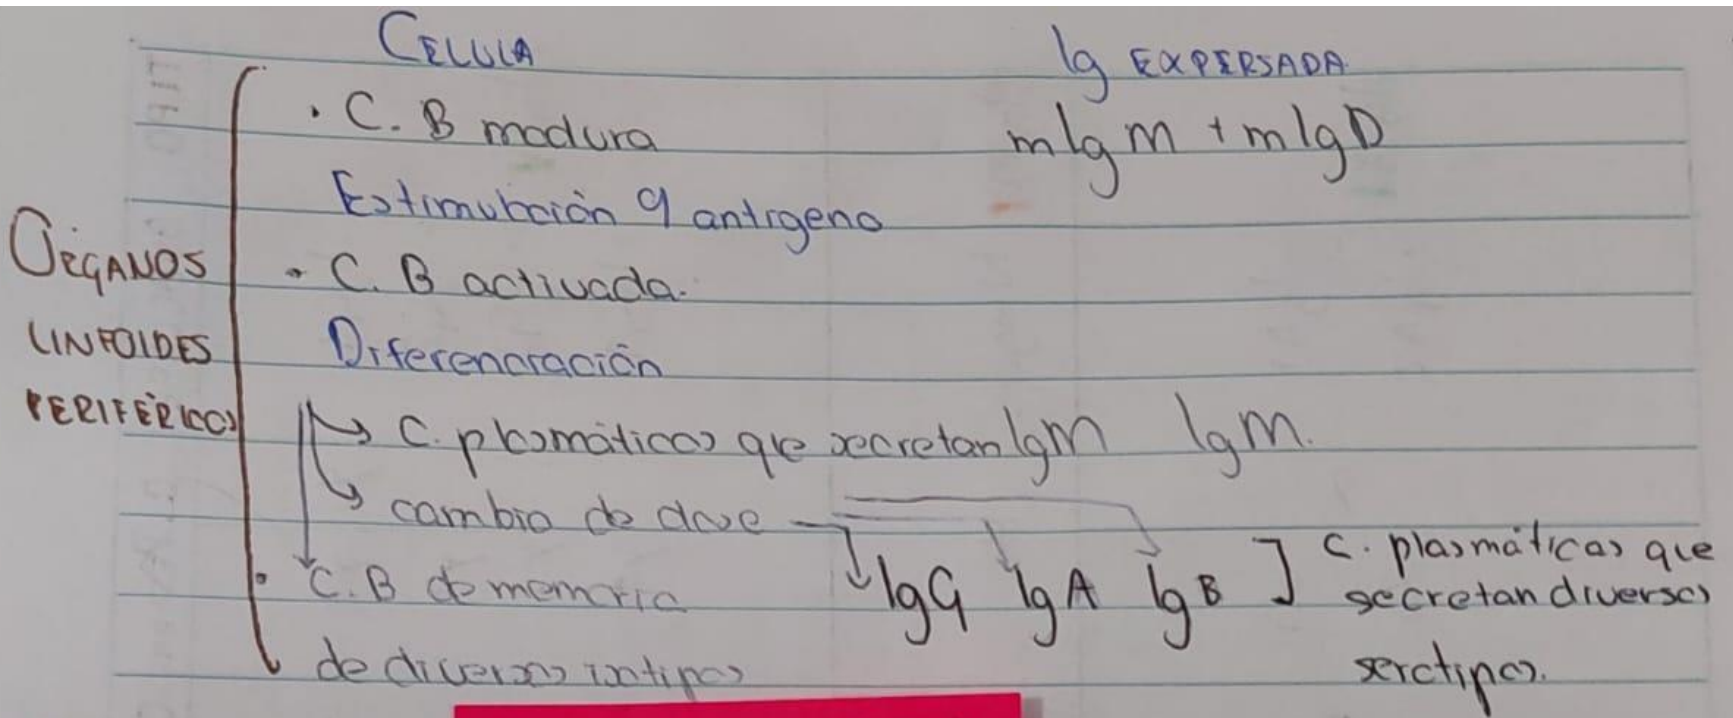 CELULA
Ig EXPERSADA
ÓRGANOS
LINFOIDES
PERIFÉRICOS
• C. B madura
mIgM + mIgD
Estimulación q antigeno
• C. B activada.
Diferenciación
C. plasmáticas que secretan IgM IgM.
cambio de clase
IgG IgA IgB ] C. plasmáticas que
secretan diversos
serotipos.
• C. B de memoria
de diversos isotipos